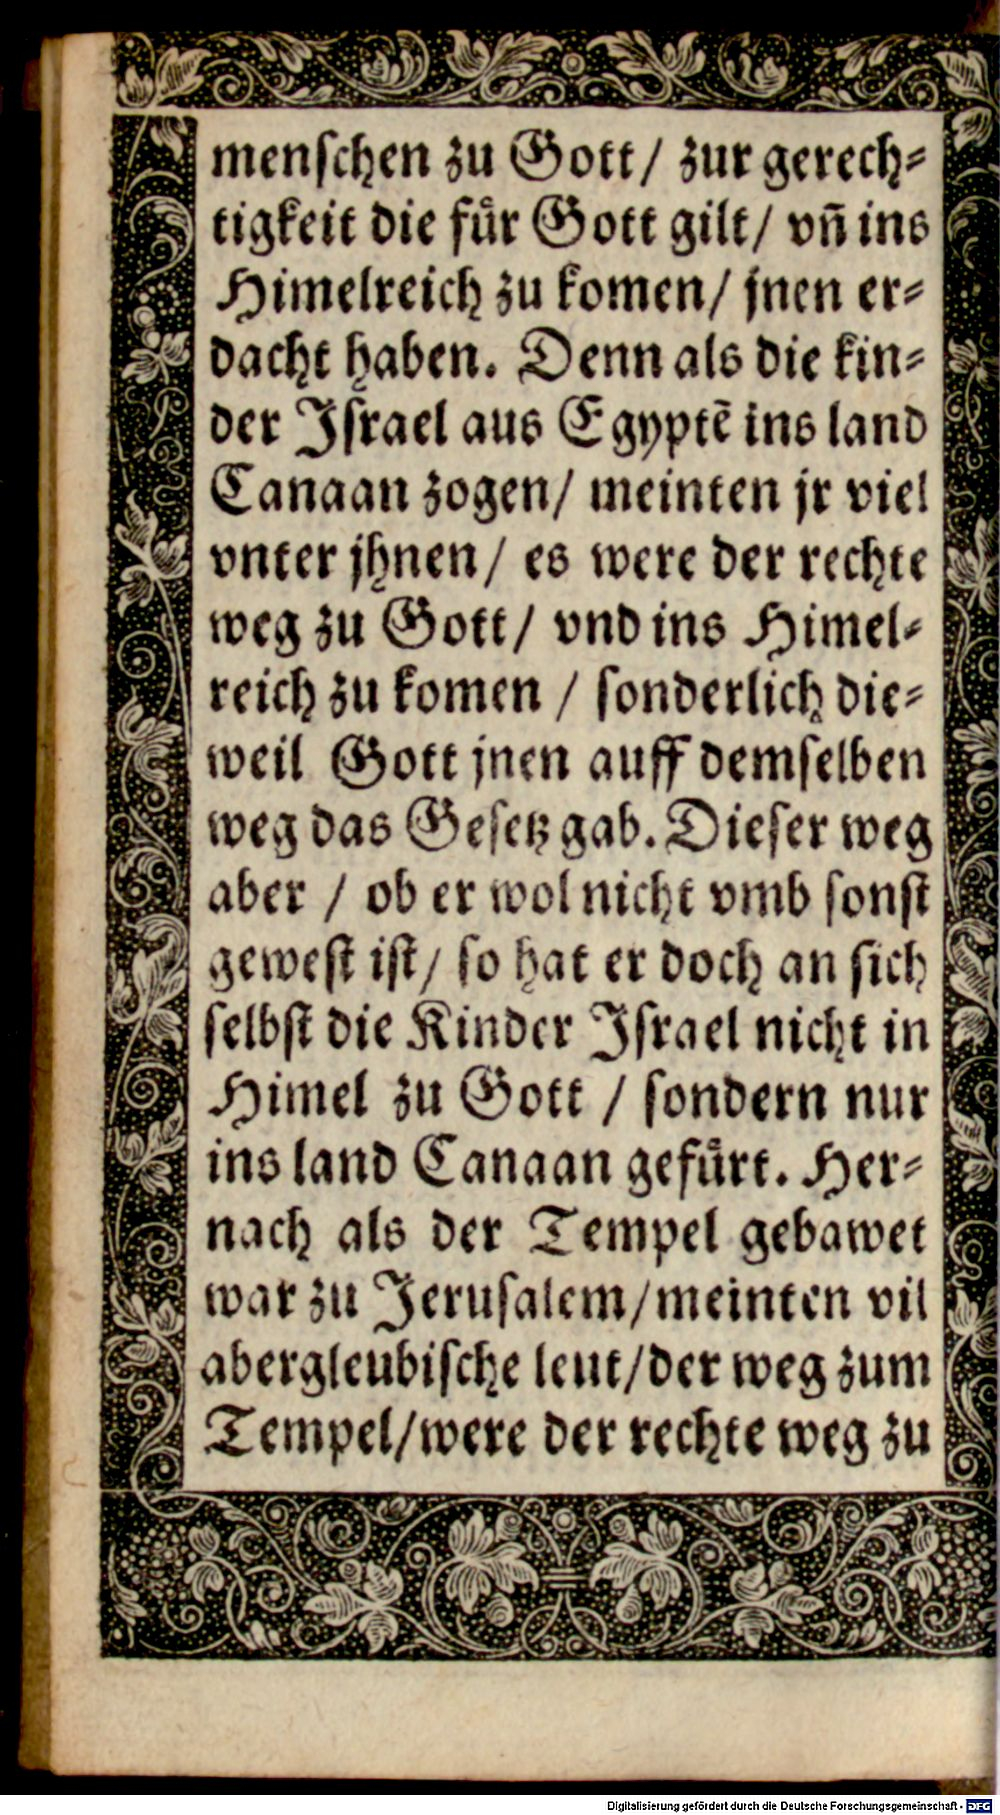 menſchen zu Gott/ zur gerech⸗
tigkeit die fuͤr Gott gilt/ vn̄ ins
Himelreich zu komen/ jnen er⸗
dacht haben. Denn als die kin⸗
der Iſrael aus Egyptē ins land
Canaan zogen/ meinten jr viel
vnter jhnen/ es were der rechte
weg zu Gott/ vnd ins Himel⸗
reich zu komen / ſonderlich die⸗
weil Gott jnen auff demſelben
weg das Geſetz gab. Dieſer weg
aber / ob er wol nicht vmb ſonſt
geweſt iſt/ ſo hat er doch an ſich
ſelbſt die Kinder Iſrael nicht in
Himel zu Gott / ſondern nur
ins land Canaan gefuͤrt. Her⸗
nach als der Tempel gebawet
war zu Jeruſalem/meinten vil
abergleubiſche leut/der weg zum
Tempel/were der rechte weg zu
Digitalisierung gefördert durch die Deutsche Forschungsgemeinschaft - DFG